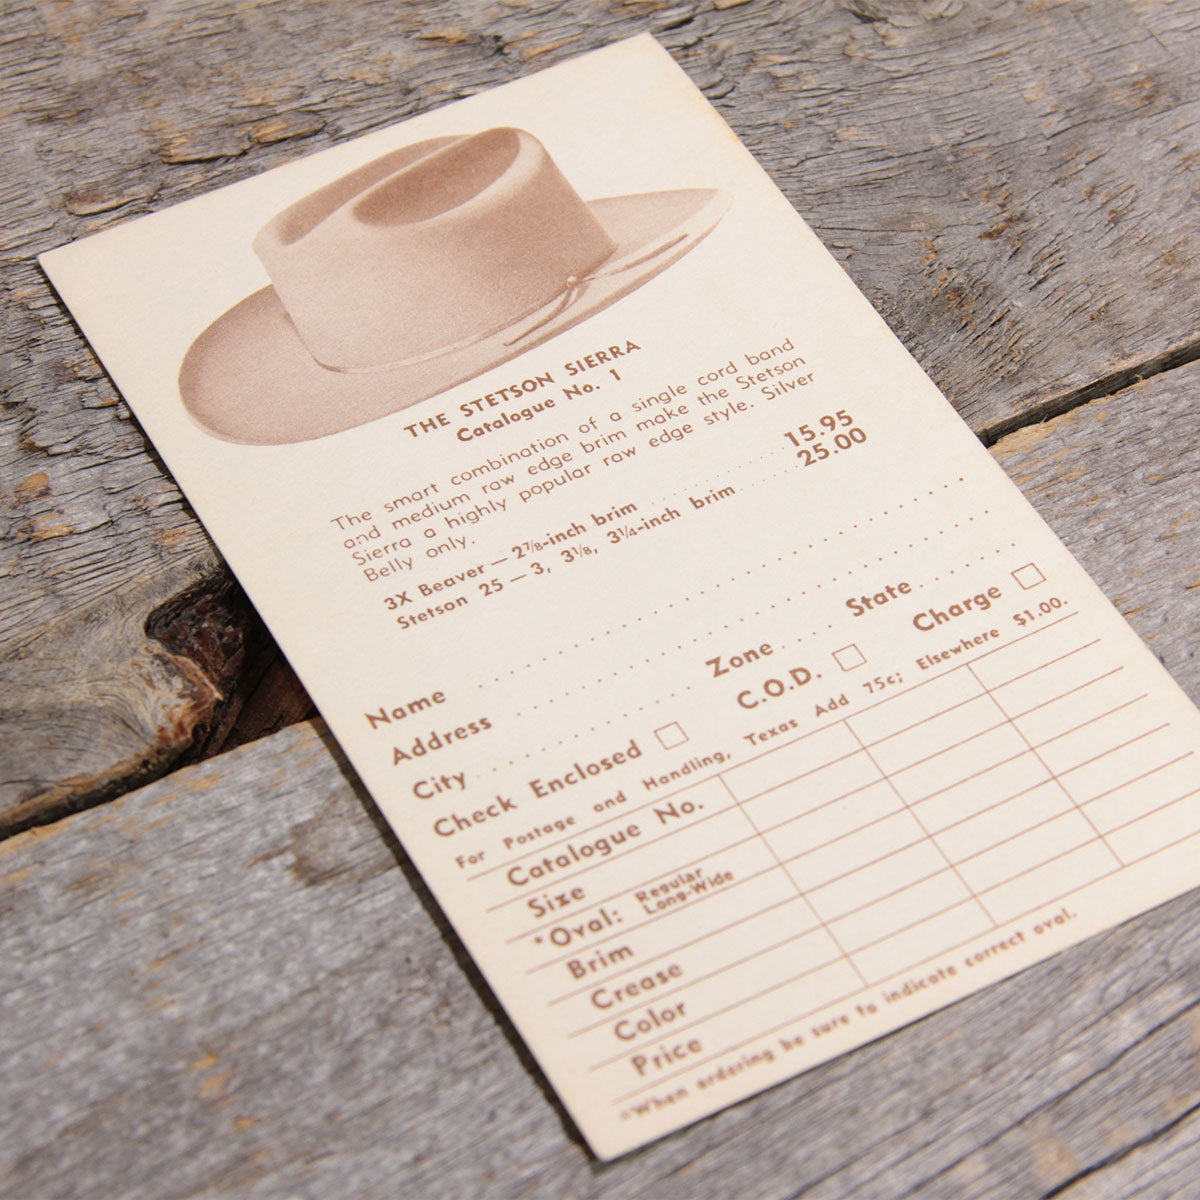 THE STETSON SIERRA
Catalogue No. 1
The smart combination of a single cord band
and medium raw edge brim make the Stetson
Sierra a highly popular raw edge style. Silver
Belly only.
3X Beaver — 2⅞-inch brim .......... 15.95
Stetson 25 — 3, 3⅛, 3¼-inch brim ..... 25.00
Name
Address
City Zone State
Check Enclosed □ C.O.D. □ Charge □
For Postage and Handling, Texas Add 75c; Elsewhere $1.00.
Catalogue No.
Size
*Oval: Regular
Long-Wide
Brim
Crease
Color
Price
*When ordering be sure to indicate correct oval.